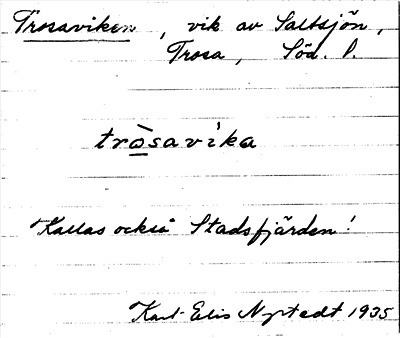 Trosaviken, vik av Saltsjön,
Trosa, Söd. l.
tròsavi'ka
Kallas också Stadsfjärden!
Karl-Elis Nystedt 1935